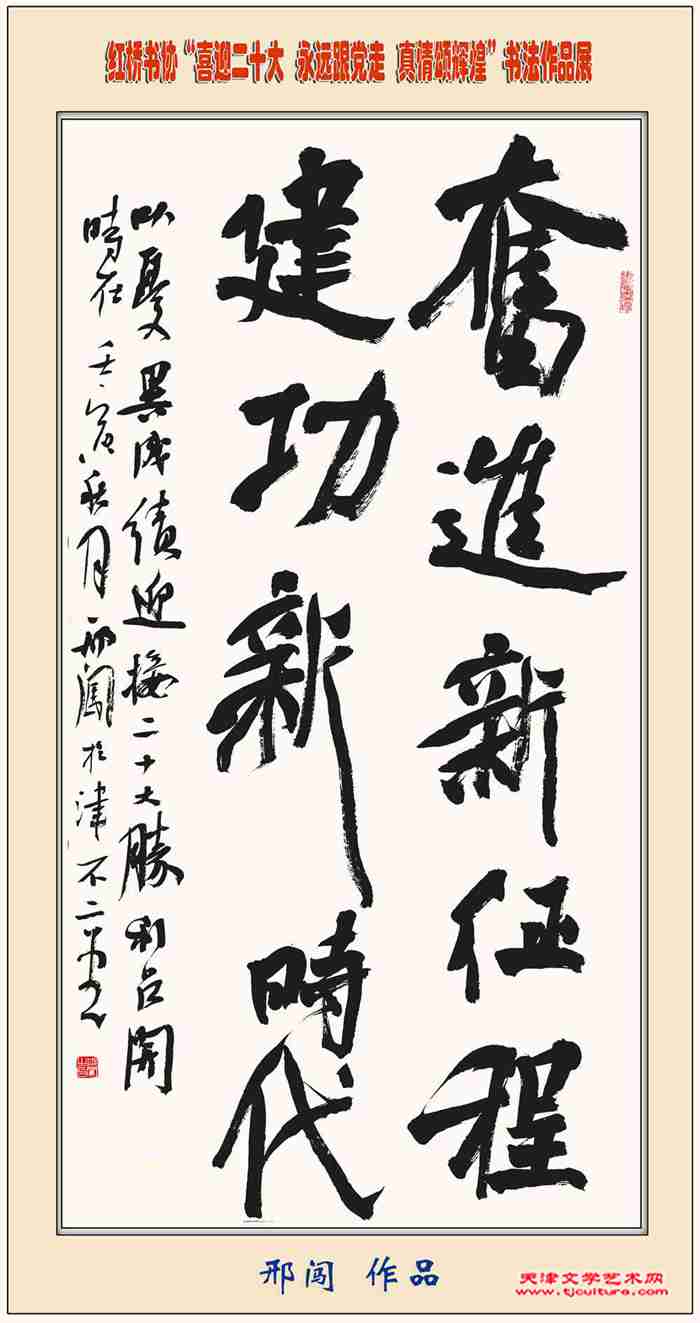 红桥书协“喜迎二十大 永远跟党走 真情颂辉煌”书法作品展
奮進新征程
建功新時代
以優異成績迎接二十大勝利召開
時在壬寅秋月邢闯於津不二
邢闯 作品
天津文学艺术网
www.tjculture.com